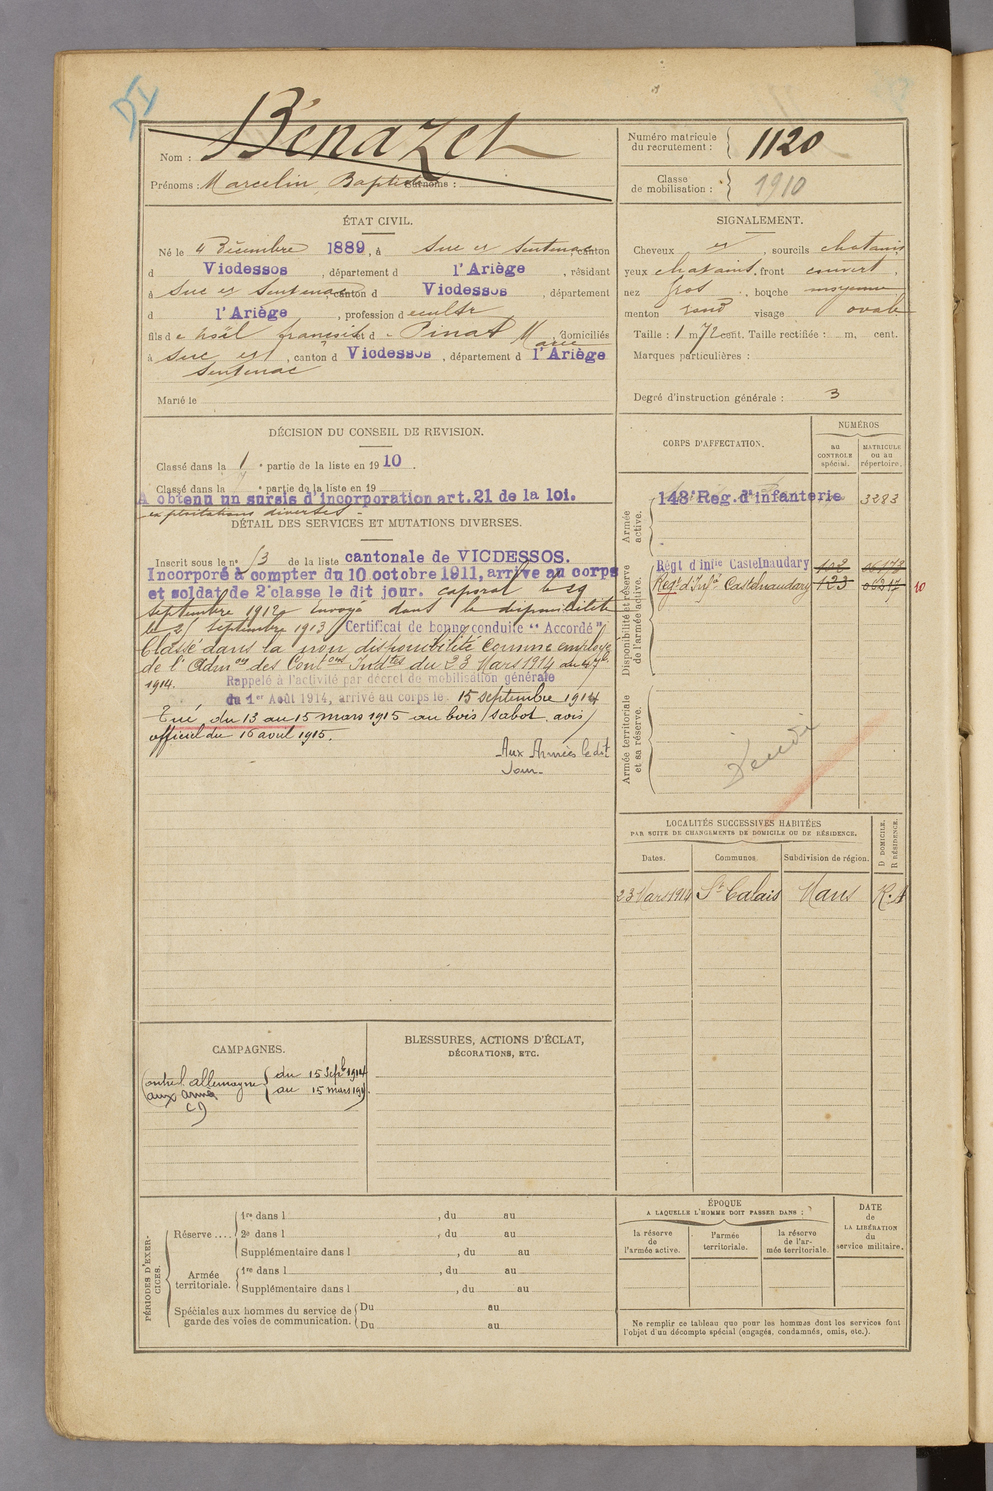 DI
Nom : Bénazet
Prénoms : Marcelin Baptiste Surnoms :
Numéro matricule du recrutement : 1120
Classe de mobilisation : 1910
ÉTAT CIVIL.
Né le 4 Décembre 1889, à Suc et Sentenac, canton
d Vicdessos, département d l'Ariège, résidant
à Suc et Sentenac, canton d Vicdessos, département
d l'Ariège, profession d cultr
fils de François et d Pinat Marie, domiciliés
à Suc et Sentenac, canton d Vicdessos, département d l'Ariège
Marié le
SIGNALEMENT.
Cheveux et, sourcils chatains
yeux chatains, front couvert,
nez gros, bouche moyenne
menton rond visage ovale
Taille : 1 m 72 cent. Taille rectifiée : m, cent.
Marques particulières :
Degré d'instruction générale : 3
DÉCISION DU CONSEIL DE REVISION.
Classé dans la 1 e partie de la liste en 1910.
Classé dans la e partie de la liste en 19
A obtenu un sursis d'incorporation art. 21 de la loi.
exploitations diverses.
DÉTAIL DES SERVICES ET MUTATIONS DIVERSES.
Inscrit sous le n° 13 de la liste cantonale de VICDESSOS.
Incorporé à compter du 10 octobre 1911, arrivé au corps
et soldat de 2e classe le dit jour. caporal le 29
septembre 1912. Envoyé dans la disponibilité
le septembre 1913 Certificat de bonne conduite "Accordé"
Classé dans la non disponibilité comme employé
de l'Admon des Contons Indtes du 23 Mars 1914 au
1914. Rappelé à l'activité par décret de mobilisation générale
du 1er Août 1914, arrivé au corps le 15 septembre 1914
Tué du 13 au 15 mars 1915 au bois Sabot, avis
officiel du 16 avril 1915.
Aux Armées le dit
Jour.
CORPS D'AFFECTATION.
NUMÉROS
au CONTROLE spécial.
MATRICULE ou au répertoire.
Armée active.
143e Reg. d'infanterie 3283
Disponibilité et réserve de l'armée active.
Régt d'infie Castelnaudary
Regt d'Infie Castelnaudary 123
10
Armée territoriale et sa réserve.
LOCALITÉS SUCCESSIVES HABITÉES
PAR SUITE DE CHANGEMENTS DE DOMICILE OU DE RÉSIDENCE.
Dates. Communes. Subdivision de région. D DOMICILE. R RÉSIDENCE.
23 Mars 1914 St Calais Mans R.
CAMPAGNES.
Contre l'allemagne du 15 Septbre 1914
aux armées au 15 mars 1915.
CD
BLESSURES, ACTIONS D'ÉCLAT,
DÉCORATIONS, ETC.
PÉRIODES D'EXERCICES.
Réserve.... 1re dans l , du au
2e dans l , du au
Supplémentaire dans l , du au
Armée territoriale. 1re dans l , du au
Supplémentaire dans l , du au
Spéciales aux hommes du service de garde des voies de communication. Du au
Du au
ÉPOQUE
A LAQUELLE L'HOMME DOIT PASSER DANS :
la réserve de l'armée active.
l'armée territoriale.
la réserve de l'armée territoriale.
DATE de LA LIBÉRATION du service militaire.
Ne remplir ce tableau que pour les hommes dont les services font
l'objet d'un décompte spécial (engagés, condamnés, omis, etc.).